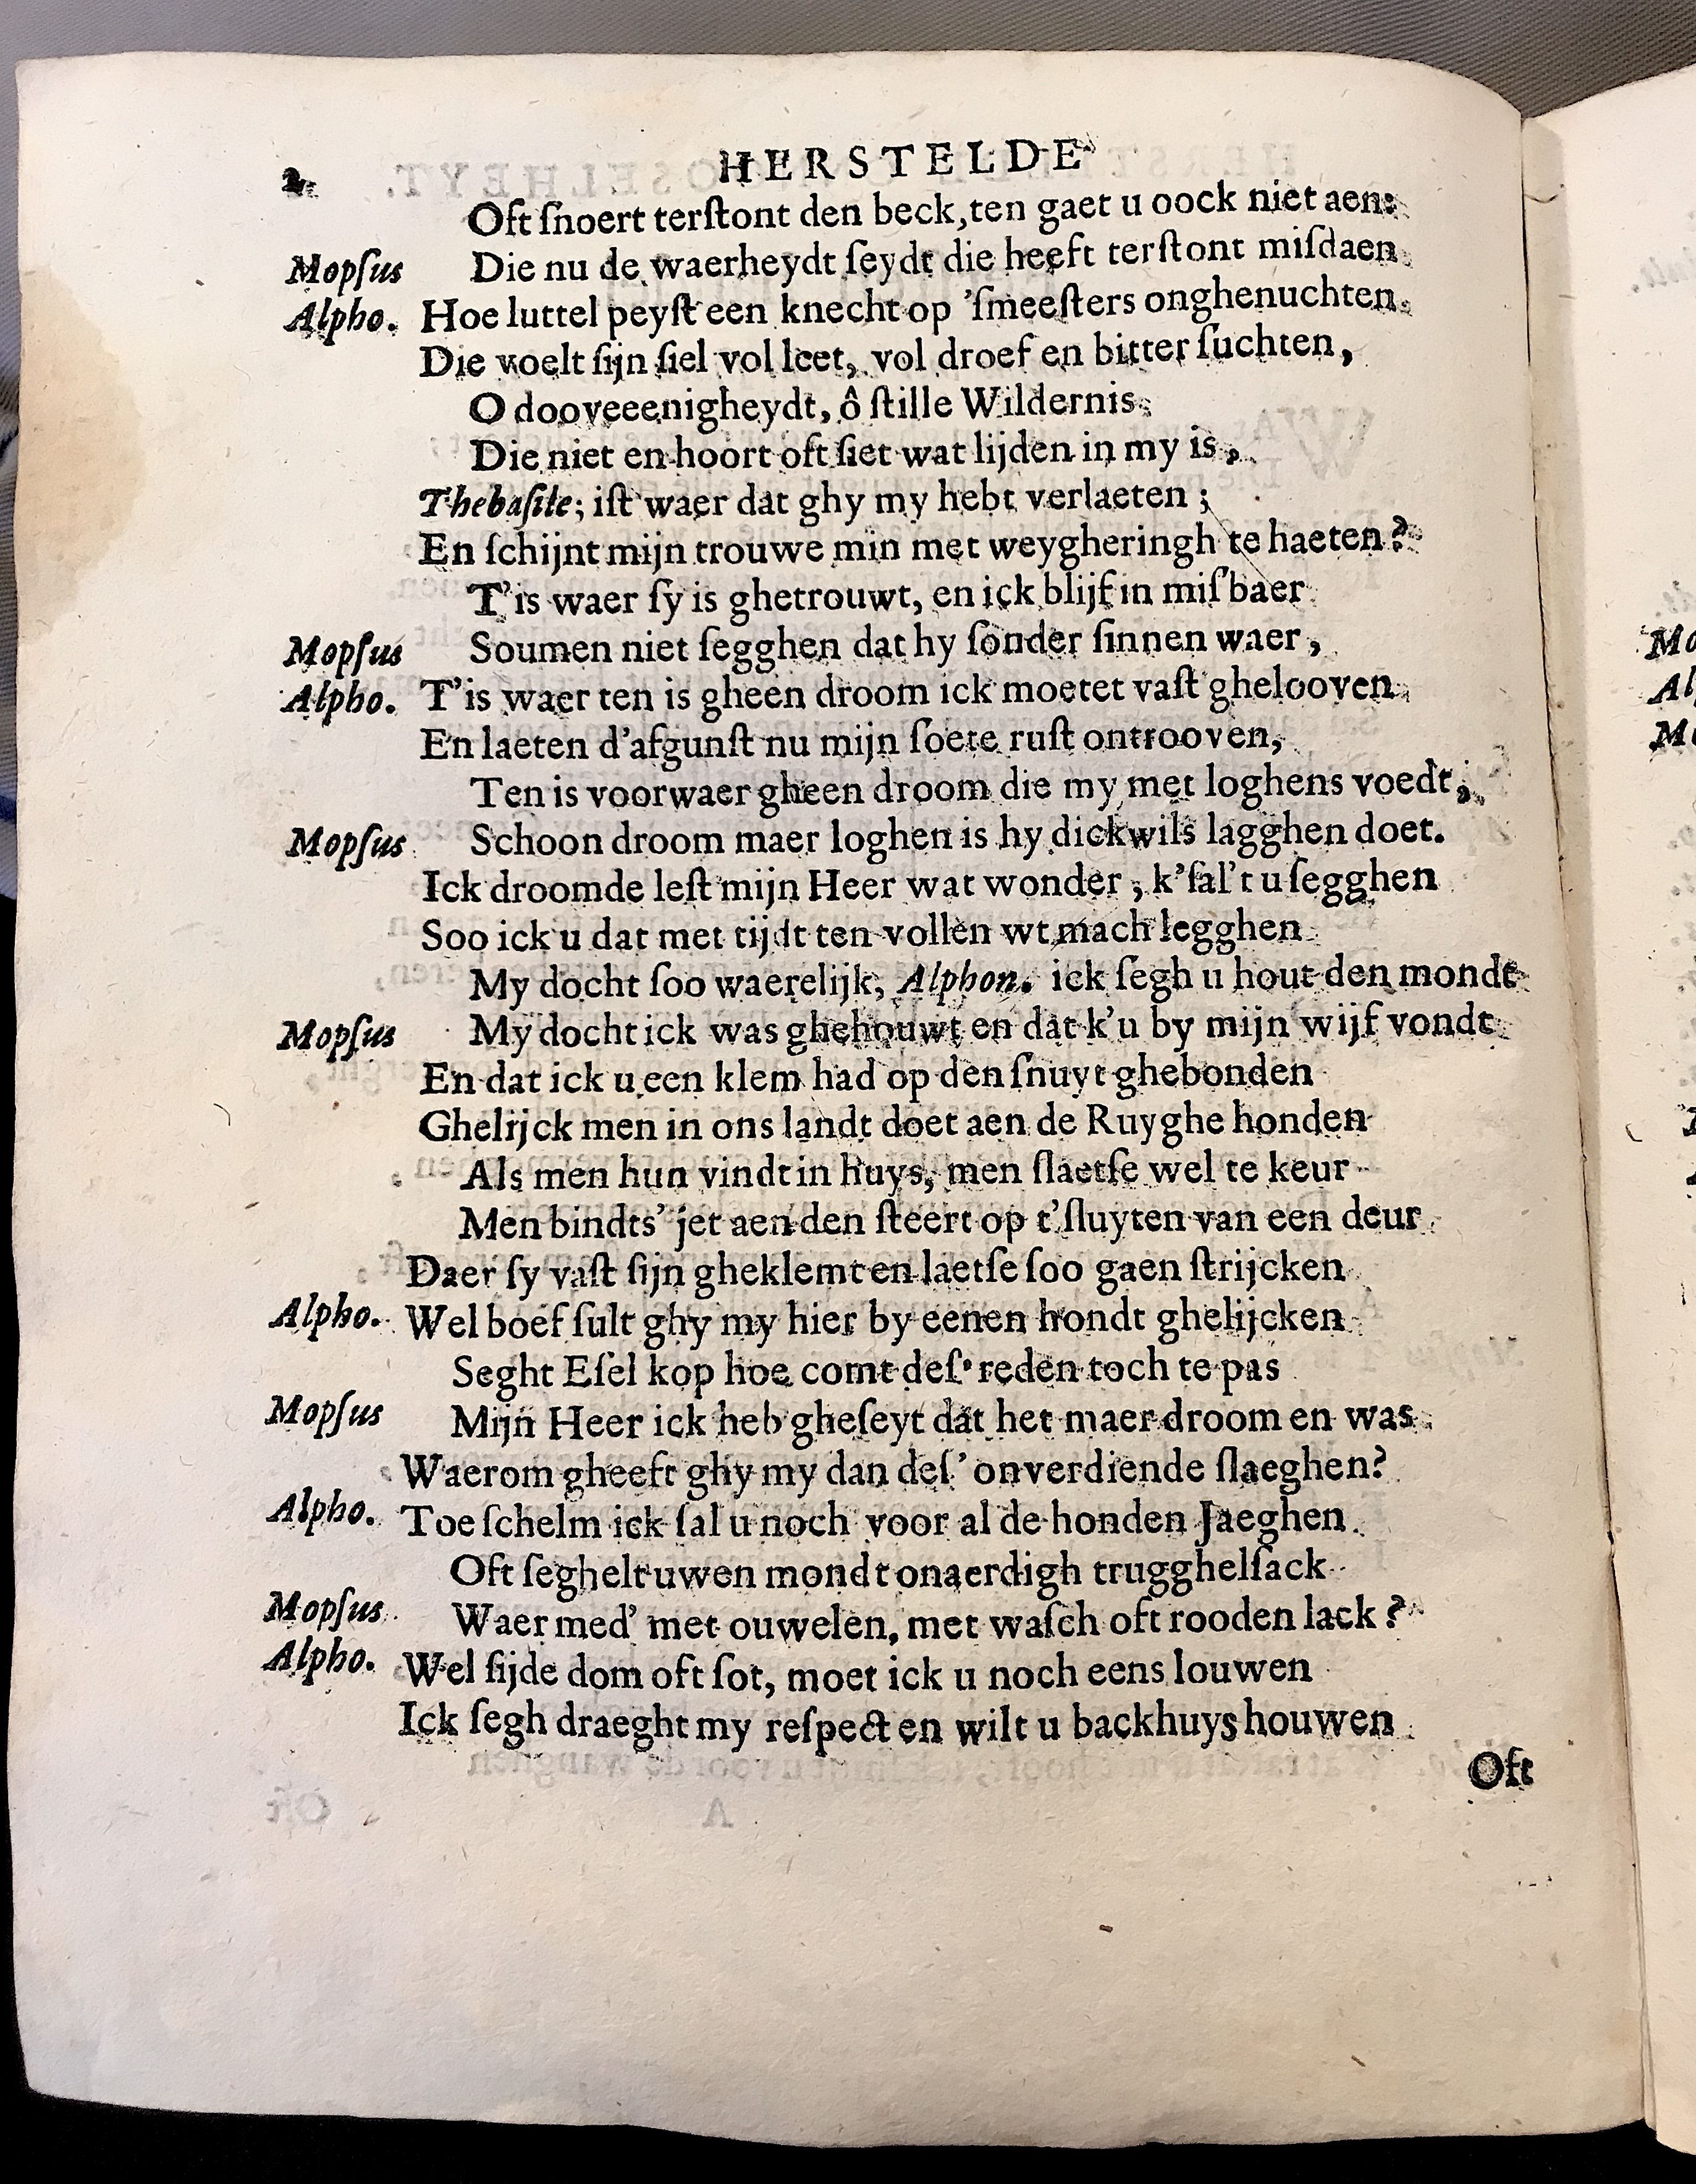 2. HERSTELDE
Oft ſnoert terſtont den beck, ten gaet u oock niet aen:
Mopſus Die nu de waerheydt ſeydt die heeft terſtont miſdaen.
Alpho. Hoe luttel peyſt een knecht op 'ſmeeſters onghenuchten.
Die voelt ſijn ſiel vol leet, vol droef en bitter ſuchten,
O dooveeenigheydt, ô ſtille Wildernis.
Die niet en hoort oft ſiet wat lijden in my is,
Thebaſile; iſt waer dat ghy my hebt verlaeten;
En ſchijnt mijn trouwe min met weygheringh te haeten?
T'is waer ſy is ghetrouwt, en ick blijf in miſbaer
Mopſus Soumen niet ſegghen dat hy ſonder ſinnen waer,
Alpho. T'is waer ten is gheen droom ick moetet vaſt ghelooven.
En laeten d'afgunſt nu mijn ſoete ruſt ontrooven,
Ten is voorwaer gheen droom die my met loghens voedt;
Mopſus Schoon droom maer loghen is hy dickwils lagghen doet.
Ick droomde leſt mijn Heer wat wonder; k'ſal't u ſegghen
Soo ick u dat met tijdt ten vollen wt mach legghen
My docht ſoo waerelijk, Alphon. ick ſegh u hout den mondt
Mopſus My docht ick was ghehouwt en dat k'u by mijn wijf vondt
En dat ick u een klem had op den ſnuyt ghebonden
Ghelijck men in ons landt doet aen de Ruyghe honden
Als men hun vindt in huys, men ſlaetſe wel te keur
Men bindts' jet aen den ſteert op t'ſluyten van een deur
Daer ſy vaſt ſijn gheklemt en laetſe ſoo gaen ſtrijcken
Alpho. Wel boef ſult ghy my hier by eenen hondt ghelijcken
Seght Eſel kop hoe comt deſ' reden toch te pas
Mopſus Mijn Heer ick heb gheſeyt dat het maer droom en was.
Waerom gheeft ghy my dan deſ' onverdiende ſlaeghen?
Alpho. Toe ſchelm ick ſal u noch voor al de honden Jaeghen.
Oft ſeghelt uwen mondt onaerdigh trugghelſack
Mopſus Waer med' met ouwelen, met waſch oft rooden lack?
Alpho. Wel ſijde dom oft ſot, moet ick u noch eens louwen
Ick ſegh draeght my reſpect en wilt u backhuys houwen
Oft